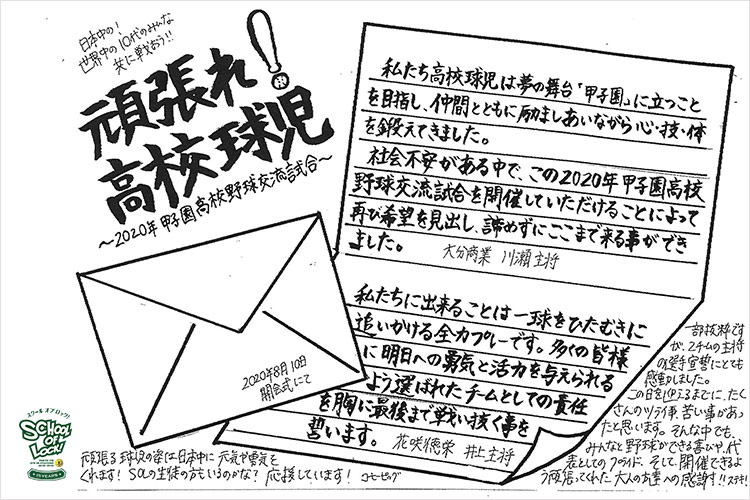 日本中の!
世界中の10代のみんな
共に戦おう!!
頑張れ!
高校球児
～2020年 甲子園高校野球交流試合～
私たち高校球児は夢の舞台「甲子園」に立つこと
を目指し、仲間とともに励ましあいながら心・技・体
を鍛えてきました。
社会不安がある中で、この2020年甲子園高校
野球交流試合を開催していただけることによって
再び希望を見出し、諦めずにここまで来る事ができ
ました。
大分商業 川瀬主将
私たちに出来ることは一球をひたむきに
追いかける全力プレーです。多くの皆様
に明日への勇気と活力を与えられる
よう選ばれたチームとしての責任
を胸に最後まで戦い抜く事を
誓います。
花咲徳栄 井上主将
2020年8月10日
開会式にて
一部抜粋です
が、2チームの主将
の選手宣誓にとても
感動しました。
この日を迎えるまでに、たく
さんのツライ事 苦い事があっ
たと思います。そんな中でも、
みんなと野球ができる喜びや、代
表としてのプライド、そして、開催できるよ
う頑張ってくれた大人の方達への感謝!!ステキ!
頑張る球児の姿は日本中に元気や勇気を
くれます! SOLの生徒の方もいるのかな? 応援しています!
コーヒーピッグ
スクールオブロック!
SCHOOL
OF
LOCK!
15 YEARS